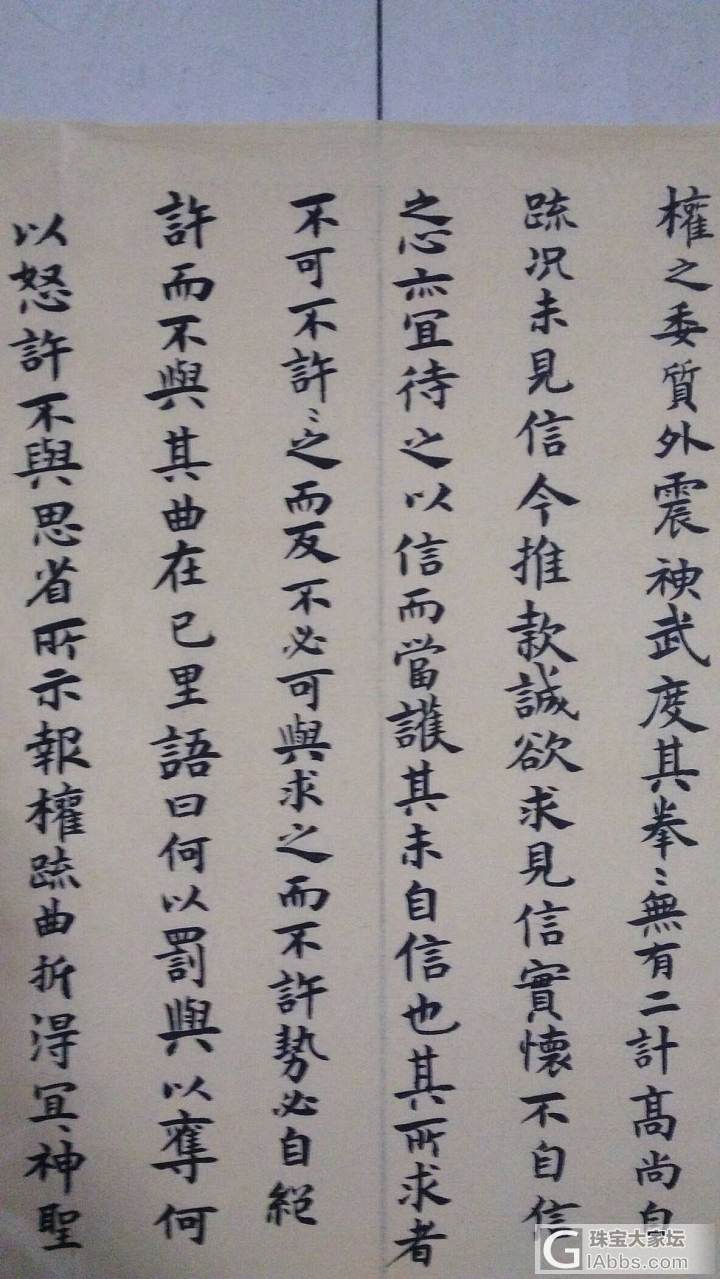 權之委質外震神武度其拳〻無有二計髙尚自
疏况未見信今推款誠欲求見信實懷不自信
之心亦冝待之以信而當護其未自信也其所求者
不可不許〻之而反不必可與求之而不許勢必自絕
許而不與其曲在已里語曰何以罰與以奪何
以怒許不與思省所示報權疏曲折淂冝〻神聖
珠宝大家坛
GIAbbs.com